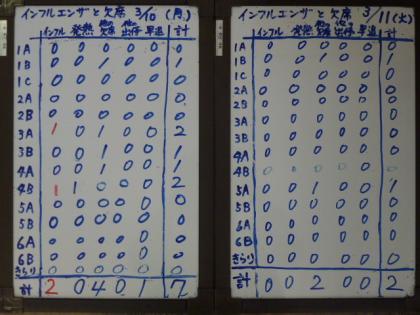 インフルエンザと欠席 3/10 (月)
インフル 発熱 他の欠席 他の出停 早退 計
1A 0 0 0 0 0 0
1B 0 0 1 0 0 1
1C 0 0 0 0 0 0
2A 0 0 0 0 0 0
2B 0 0 0 0 0 0
3A 1 0 1 0 0 2
3B 0 0 1 0 0 1
4A 0 0 1 0 0 1
4B 1 1 0 0 0 2
5A 0 0 0 0 0 0
5B 0 0 0 0 0 0
6A 0 0 0 0 0 0
6B 0 0 0 0 0 0
きらり 0 0 0 0 0 0
計 2 0 4 0 1 7
インフルエンザと欠席 3/11(火)
インフル 発熱 他の欠席 他の出停 早退 計
1A 0 0 0 0 0 0
1B 0 0 1 0 0 1
1C 0 0 0 0 0 0
2A 0 0 0 0 0 0
2B 0 0 0 0 0 0
3A 0 0 0 0 0 0
3B 0 0 0 0 0 0
4A 0 0 0 0 0 0
4B 0 0 0 0 0 0
5A 0 0 1 0 0 1
5B 0 0 0 0 0 0
6A 0 0 0 0 0 0
6B 0 0 0 0 0 0
きらり 0 0 0 0 0 0
計 0 0 2 0 0 2